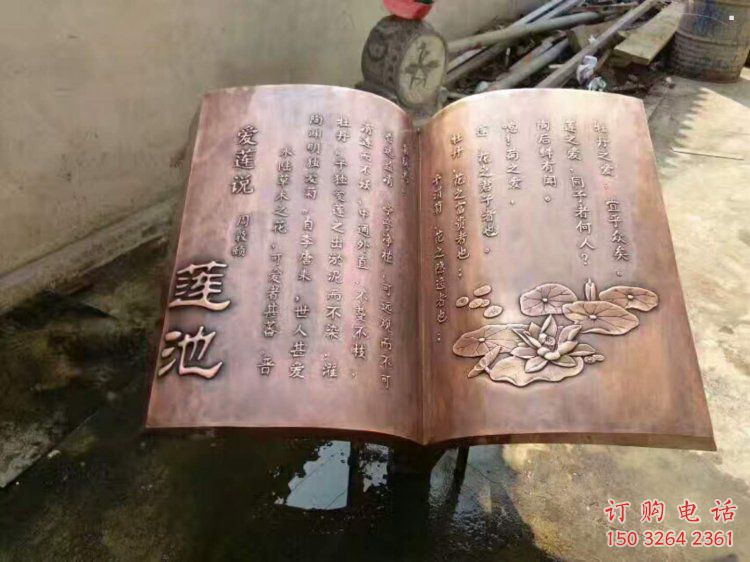 莲池
爱莲说
周敦颐
水陆草木之花,可爱者甚蕃。晋
陶渊明独爱菊。自李唐来,世人甚爱
牡丹。予独爱莲之出淤泥而不染,濯
清涟而不妖,中通外直,不蔓不枝,
香远益清,亭亭净植,可远观而不可
予谓菊,花之隐逸者也;
牡丹,花之富贵者也;
莲,花之君子者也。
噫!菊之爱,
陶后鲜有闻。
莲之爱,同予者何人?
牡丹之爱,宜乎众矣。
订购电话
150 3264 2361